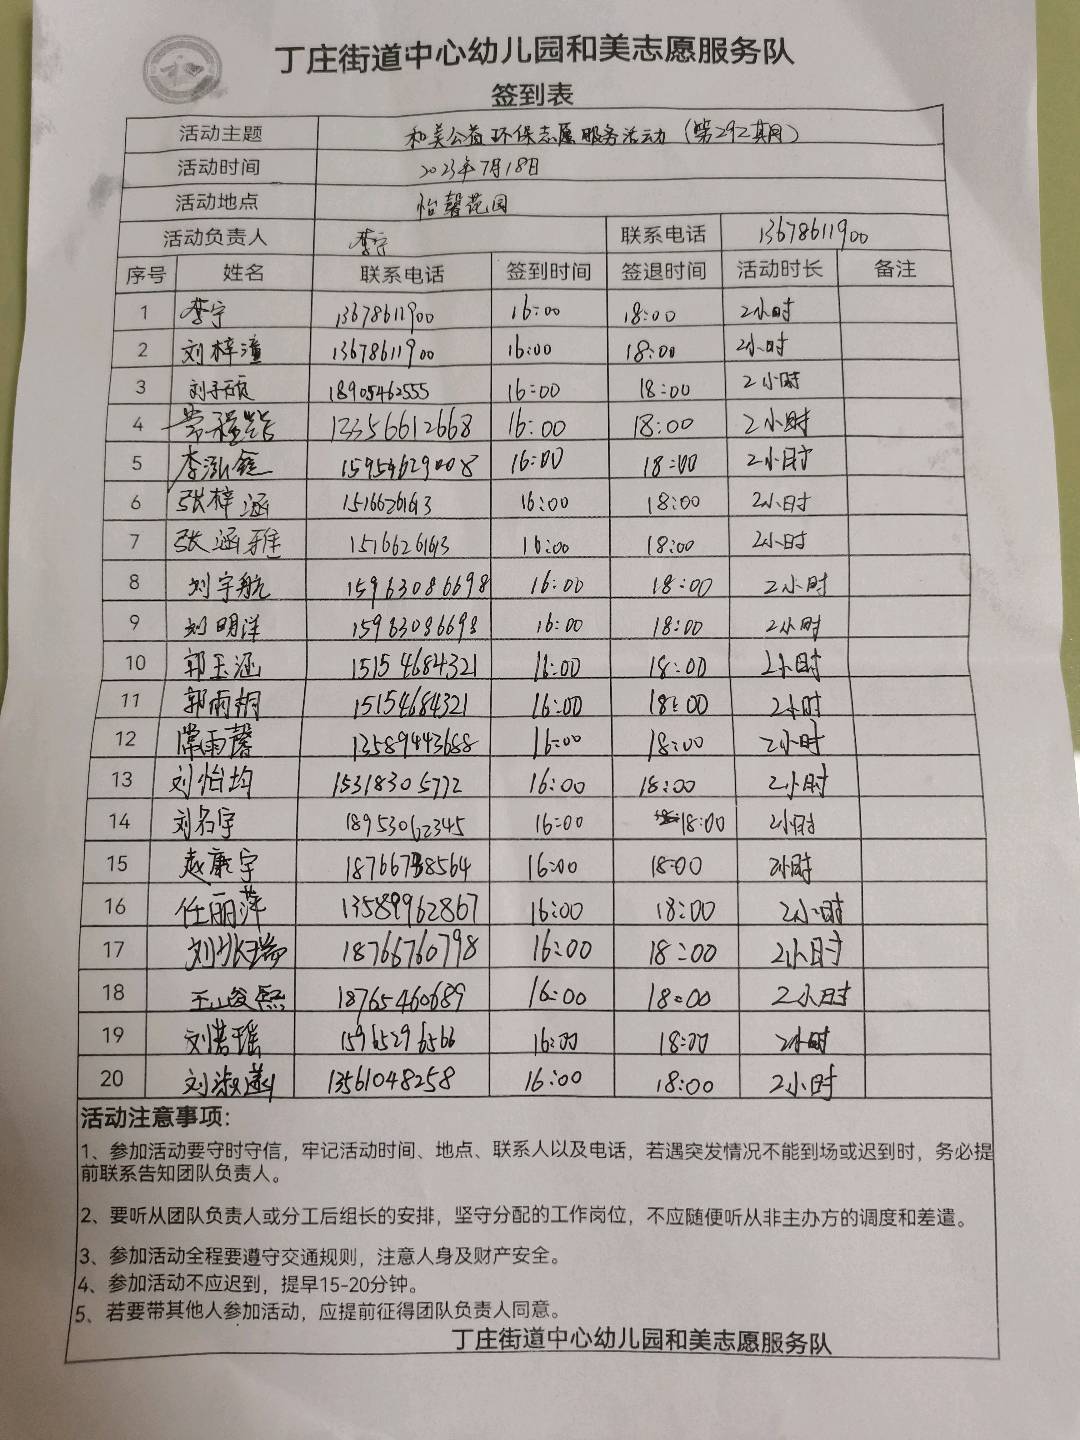 丁庄街道中心幼儿园和美志愿服务队
签到表
活动主题 和美公益环保志愿服务活动（第292期）
活动时间 2023年7月18日
活动地点 怡馨花园
活动负责人 李宁 联系电话 13678611900
序号 姓名 联系电话 签到时间 签退时间 活动时长 备注
1 李宁 13678611900 16:00 18:00 2小时
2 刘梓潼 13678611900 16:00 18:00 2小时
3 刘子硕 18905462555 16:00 18:00 2小时
4 13356612668 16:00 18:00 2小时
5 李泓鑫 15954629008 16:00 18:00 2小时
6 张梓涵 16:00 18:00 2小时
7 张涵雅 16:00 18:00 2小时
8 刘宇航 15963086698 16:00 18:00 2小时
9 刘明洋 15963086698 16:00 18:00 2小时
10 郭玉涵 15154684321 16:00 18:00 2小时
11 郭雨桐 15154684321 16:00 18:00 2小时
12 常雨馨 13589443688 16:00 18:00 2小时
13 刘怡均 15318305772 16:00 18:00 2小时
14 刘名宇 18953062345 16:00 18:00 2小时
15 赵康宇 16:00 18:00 2小时
16 任丽萍 13589962867 16:00 18:00 2小时
17 刘张瑞 18766760798 16:00 18:00 2小时
18 王峻熙 18765460689 16:00 18:00 2小时
19 刘若瑶 15965296566 16:00 18:00 2小时
20 刘淑涵 13561048258 16:00 18:00 2小时
活动注意事项：
1、参加活动要守时守信，牢记活动时间、地点、联系人以及电话，若遇突发情况不能到场或迟到时，务必提
前联系告知团队负责人。
2、要听从团队负责人或分工后组长的安排，坚守分配的工作岗位，不应随便听从非主办方的调度和差遣。
3、参加活动全程要遵守交通规则，注意人身及财产安全。
4、参加活动不应迟到，提早15-20分钟。
5、若要带其他人参加活动，应提前征得团队负责人同意。
丁庄街道中心幼儿园和美志愿服务队